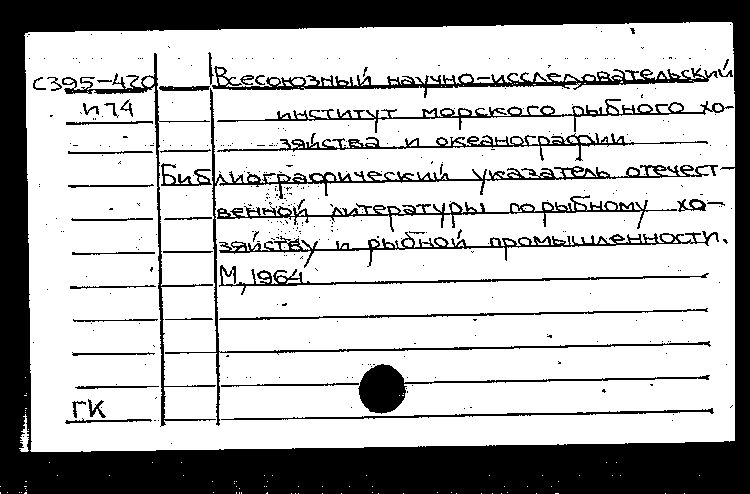 С395-420 Всесоюзный научно-исследовательский
институт морского рыбного хо-
зяйства и океанографии.
Библиографический указатель отечест-
венной литературы по рыбному хо-
зяйству и рыбной промышленности.
М, 1964.
ГК